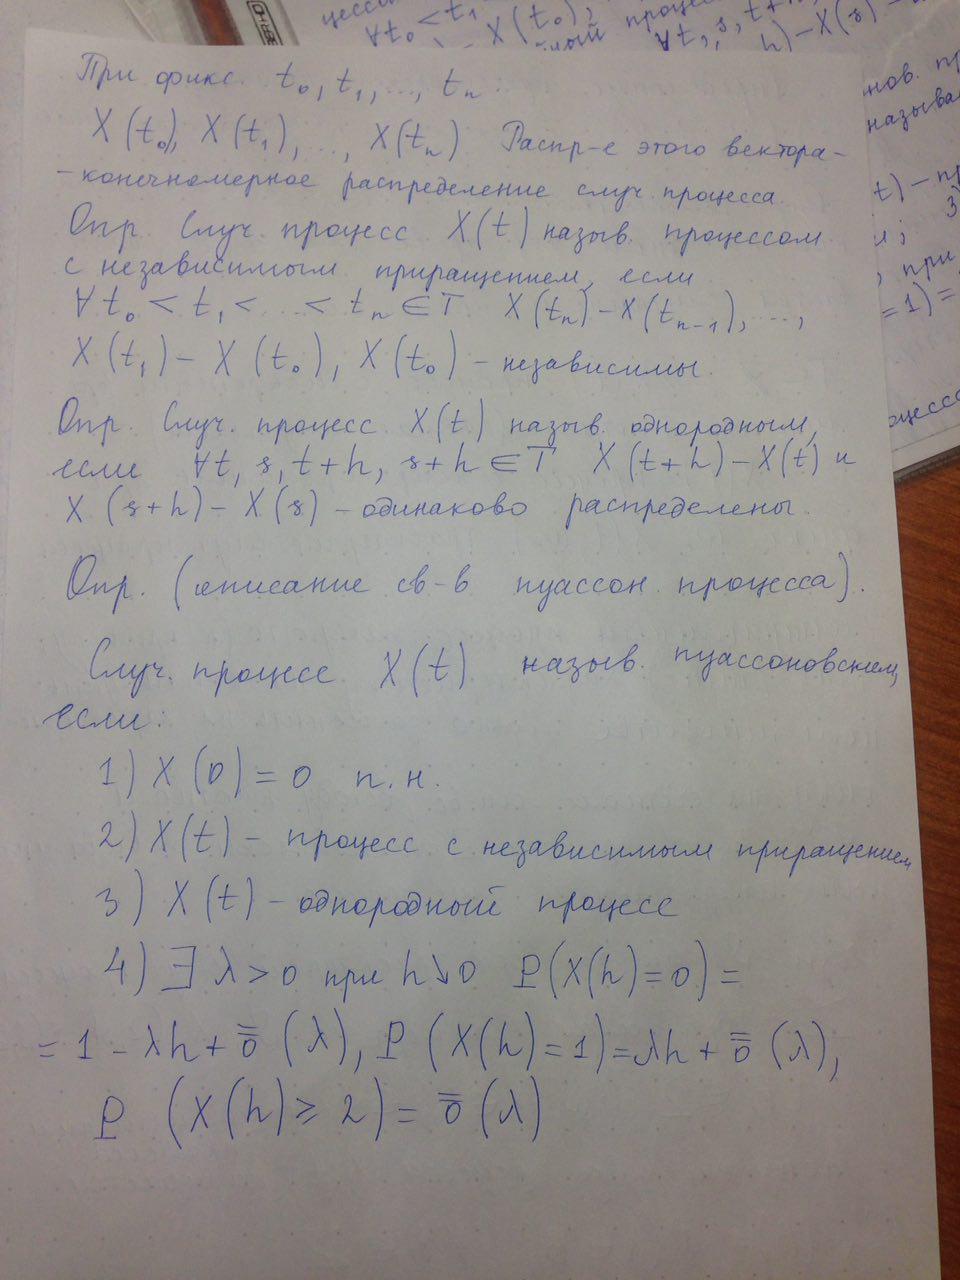 цессо
∀t₀ < t₁
X(t₀),
процес
∀t, s, t+h,
h) - X(s) -
нов. пр
называ
t) - пр
3)
при
= 1) =
оцесс
При фикс. t₀, t₁, ..., tₙ.
X(t₀), X(t₁), ..., X(tₙ) Распр-е этого вектора -
- конечномерное распределение случ процесса.
Опр. Случ. процесс X(t) назыв. процессом
с независимым приращением, если
∀t₀ < t₁ < ... < tₙ ∈ T X(tₙ) - X(tₙ₋₁), ...,
X(t₁) - X(t₀), X(t₀) - независимы.
Опр. Случ. процесс X(t) назыв. однородным,
если ∀t, s, t+h, s+h ∈ T X(t+h) - X(t) и
X(s+h) - X(s) - одинаково распределены.
Опр. (описание св-в пуассон. процесса).
Случ. процесс X(t) назыв. пуассоновским,
если:
1) X(0) = 0 п.н.
2) X(t) - процесс с независимым приращением
3) X(t) - однородный процесс
4) ∃ λ > 0 при h↘0 P(X(h) = 0) =
= 1 - λh + o̿(λ), P(X(h) = 1) = λh + o̿(λ),
P(X(h) ≥ 2) = o̿(λ)